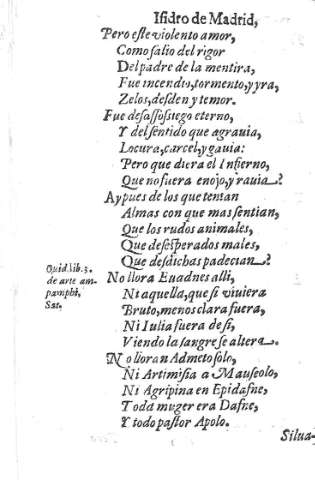 Isidro de Madrid,
Pero este violento amor,
Como salio del rigor
Del padre de la mentira,
Fue incendio, tormento, y yra,
Zelos, desden y temor.
Fue desassossiego eterno,
Y del sentido que agrauia,
Locura, carcel, y gauia:
Pero que diera el Infierno,
Que no fuera enojo, y rauia?
Ay pues de los que tentan
Almas con que mas sentian,
Que los rudos animales,
Que desesperados males,
Que desdichas padecian?
Ouid. lib. 3.
de arte am-
pamphi,
Sat.
No llora Euadnes alli,
Ni aquella, que si viuiera
Bruto, menos clara fuera,
Ni Iulia fuera de si,
Viendo la sangre se altera.
No lloran Admeto solo,
Ni Artimisia a Mauseolo,
Ni Agripina en Epidafne,
Toda muger era Dafne,
Y todo pastor Apolo.
Silua-